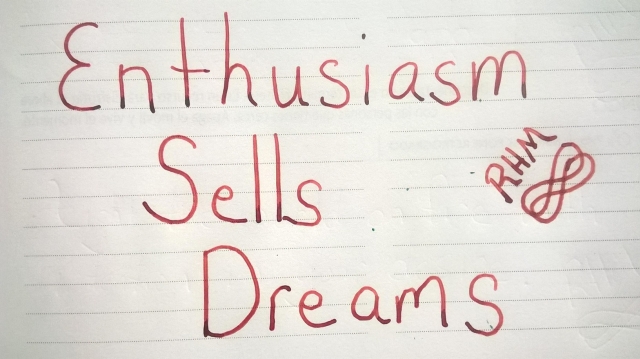 Enthusiasm
Sells
RHM
Dreams